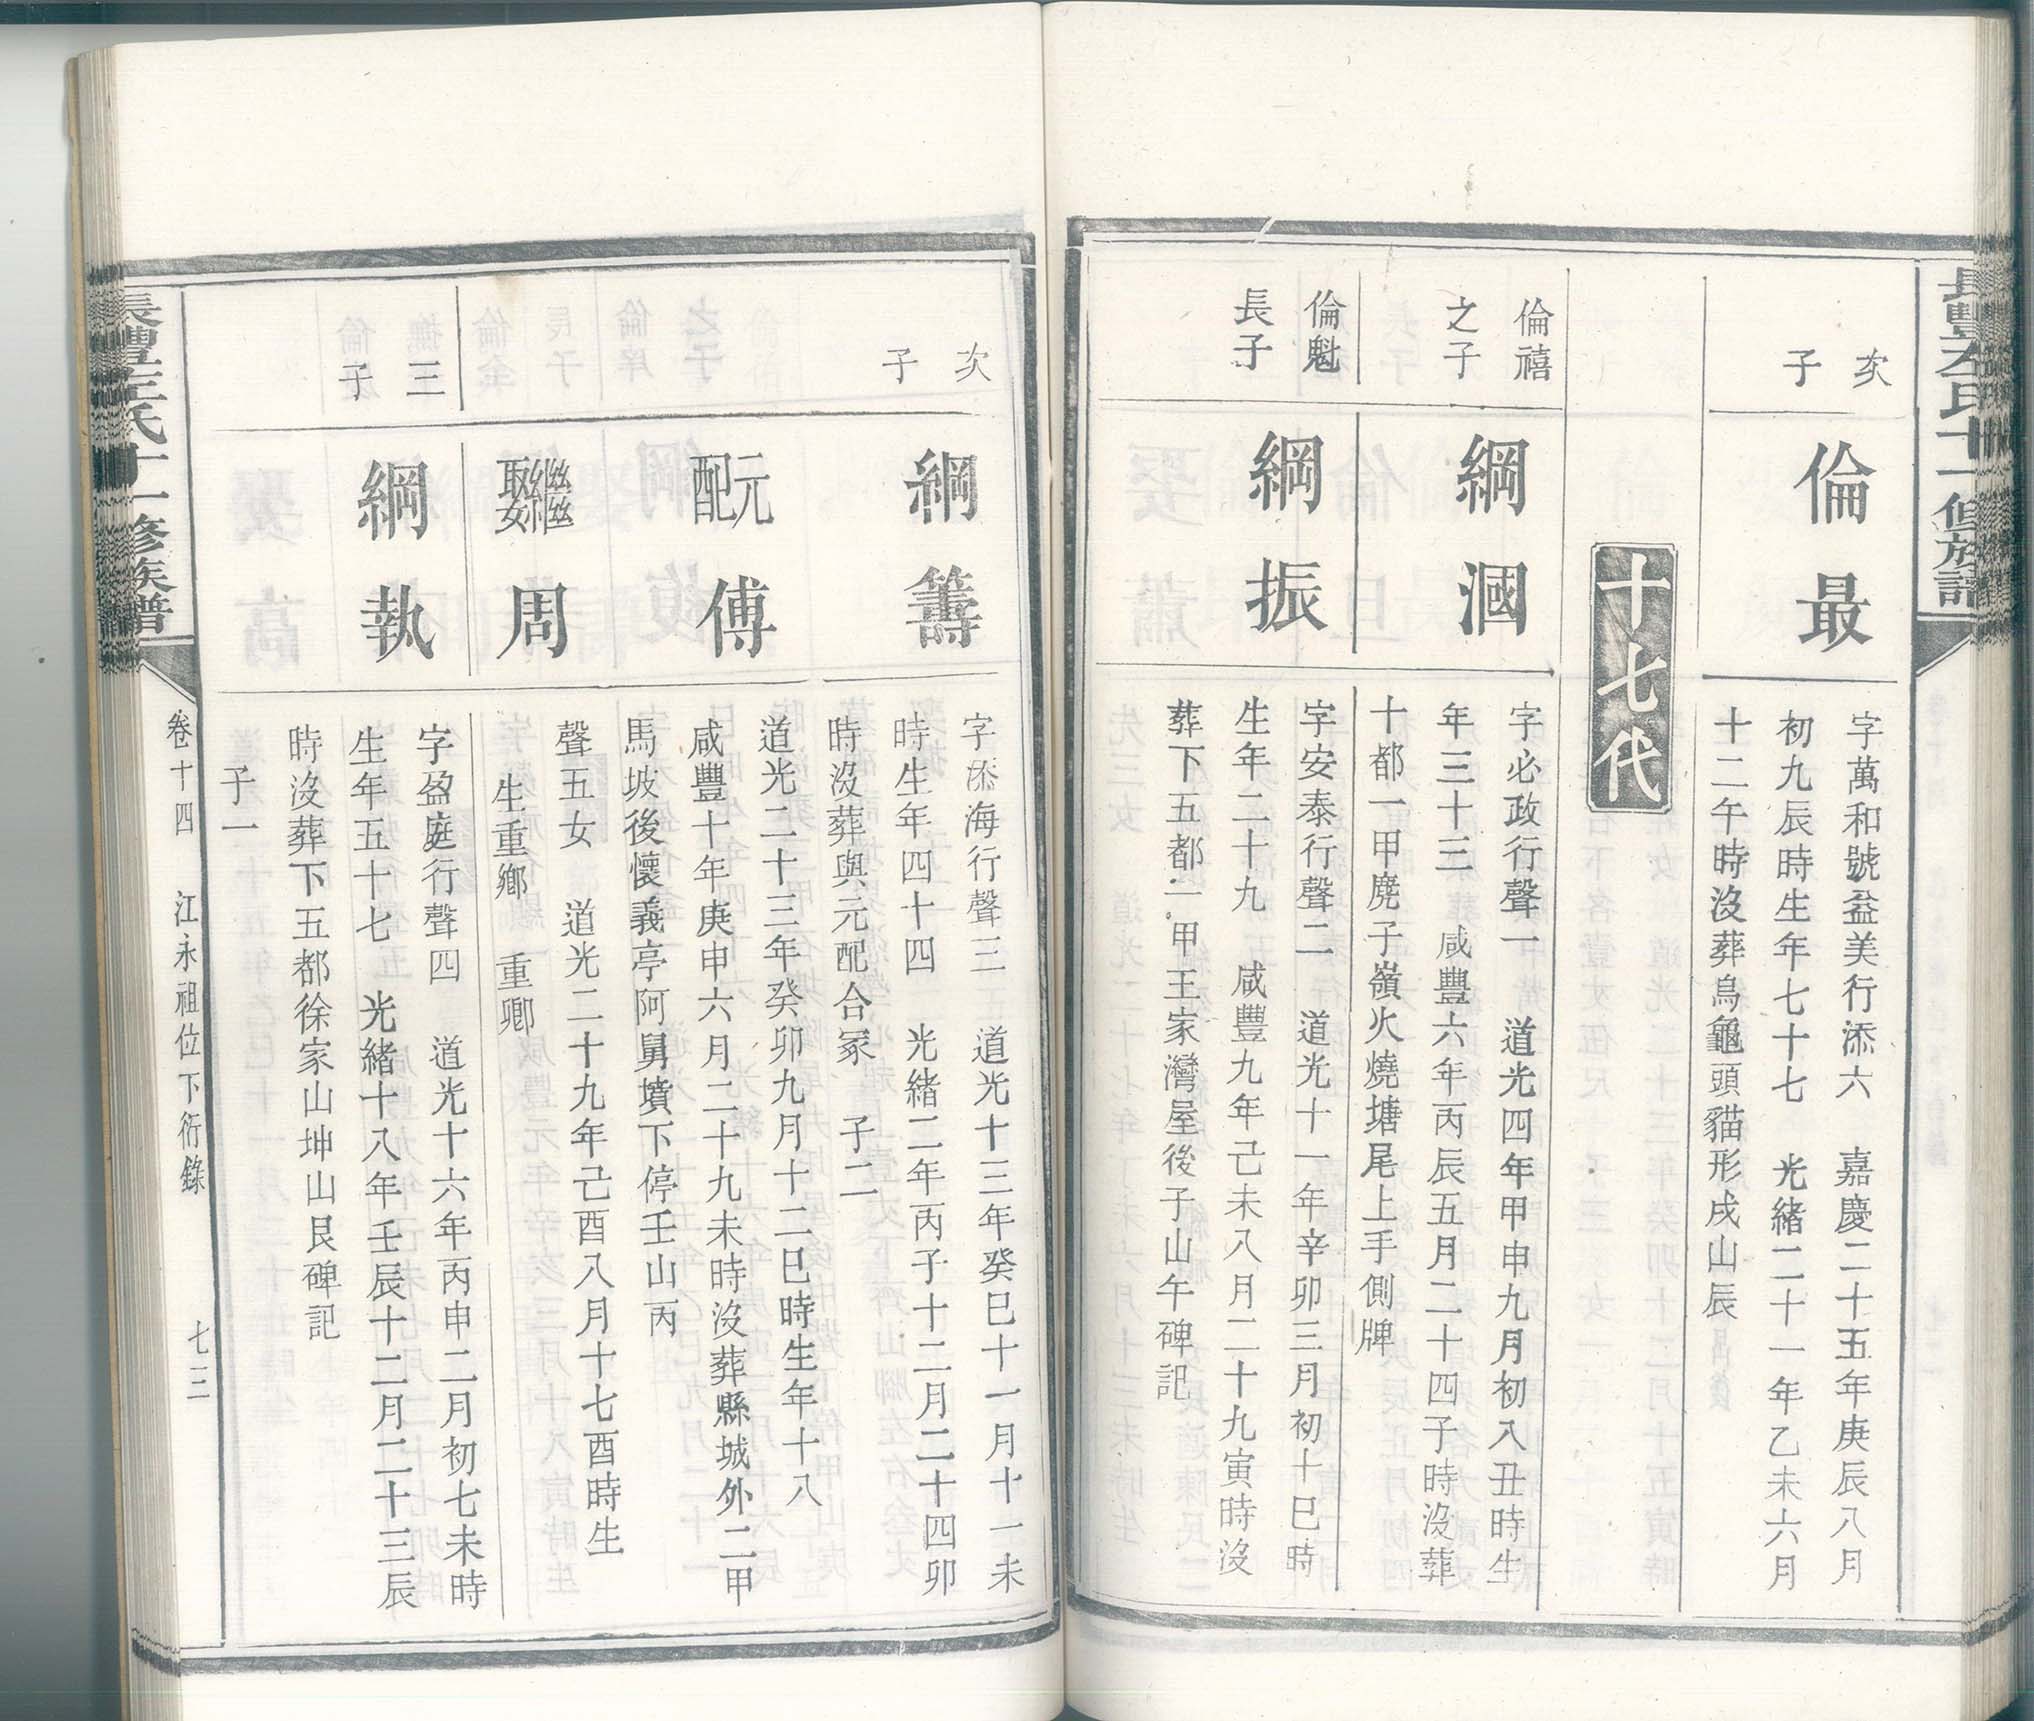 長豐左氏十一修族譜
次
子
倫最
字萬和號益美行添六　嘉慶二十五年庚辰八月
初九辰時生年七十七　光緒二十一年乙未六月
十二午時沒葬烏龜頭貓形戌山辰
十七代
倫禧
之子
綱溷
字必政行聲一　道光四年甲申九月初八丑時生
年三十三　咸豐六年丙辰五月二十四子時沒葬
十都一甲麂子嶺火燒塘尾上手側牌
倫魁
長子
綱振
字安泰行聲二　道光十一年辛卯三月初十巳時
生年二十九　咸豐九年己未八月二十九寅時沒
葬下五都二甲王家灣屋後子山午碑記
次
子
綱籌
字添海行聲三　道光十三年癸巳十一月十一未
時生年四十四　光緒二年丙子十二月二十四卯
時沒葬與元配合冢　子二
元配傅
道光二十三年癸卯九月十二巳時生年十八
咸豐十年庚申六月二十九未時沒葬縣城外二甲
馬坡後懷義亭阿舅墳下停壬山丙
繼娶周
聲五女　道光二十九年己酉八月十七酉時生
生重鄉　重卿
三
子
綱執
字盈庭行聲四　道光十六年丙申二月初七未時
生年五十七　光緒十八年壬辰十二月二十三辰
時沒葬下五都徐家山坤山艮碑記
子一
長豐左氏十一修族譜
卷十四　江永祖位下衍錄　七三